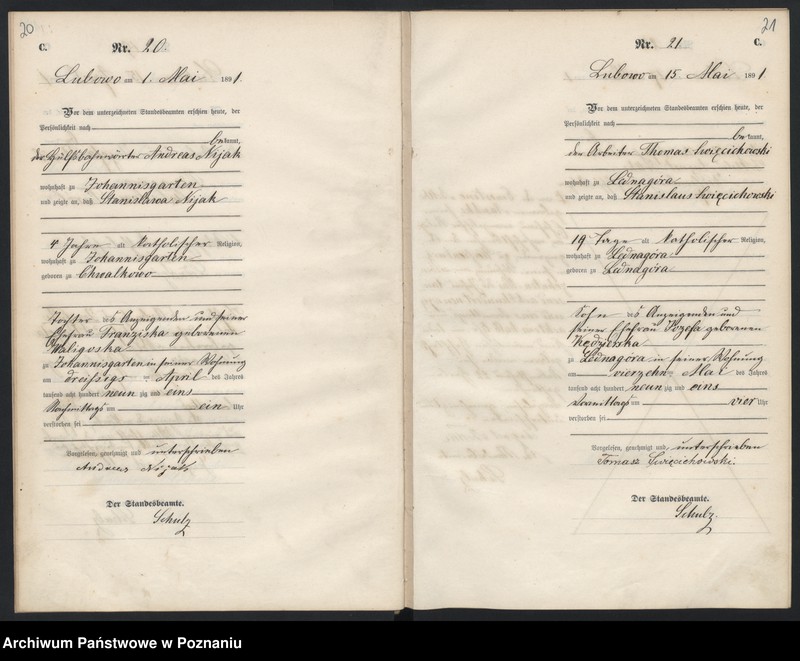 20
C. Nr. 20.
Lubowo am 1. Mai 1891.
Vor dem unterzeichneten Standesbeamten erschien heute, der
Persönlichkeit nach
bekannt,
der Hülfsbahnwärter Andreas Nijak
wohnhaft zu Johannisgarten
und zeigte an, daß Stanislawa Nijak
4 Jahre alt katholischer Religion,
wohnhaft zu Johannisgarten
geboren zu Chwalkowo
Tochter des Anzeigenden und seiner
Ehefrau Franziska geborenen
Waligoska
zu Johannisgarten in seiner Wohnung
am dreißigs- ten April des Jahres
tausend acht hundert neun zig und eins
Nachmittags um ein Uhr
verstorben sei
Vorgelesen, genehmigt und unterschrieben
Andreas Nijak
Der Standesbeamte.
Schulz
21
Nr. 21 C.
Lubowo am 15. Mai 1891
Vor dem unterzeichneten Standesbeamten erschien heute, der
Persönlichkeit nach
bekannt,
der Arbeiter Thomas Swięcichowski
wohnhaft zu Lednagóra
und zeigte an, daß Stanislaus Swięcichowski
19 Tage alt katholischer Religion,
wohnhaft zu Lednagóra
geboren zu Lednagóra
Sohn des Anzeigenden und
seiner Ehefrau Jozefa geborenen
Kędzierska
zu Lednagóra in seiner Wohnung
am vierzehn ten Mai des Jahres
tausend acht hundert neun zig und eins
Vormittags um vier Uhr
verstorben sei
Vorgelesen, genehmigt und unterschrieben
Tomasz Swięcichowski.
Der Standesbeamte.
Schulz.
Archiwum Państwowe w Poznaniu